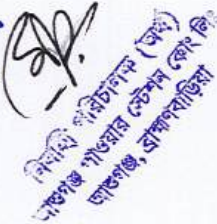 নির্বাহি পরিচালক (অর্থ)
আশুগঞ্জ পাওয়ার স্টেশন কোং লিঃ
আশুগঞ্জ, ব্রাহ্মণবাড়িয়া